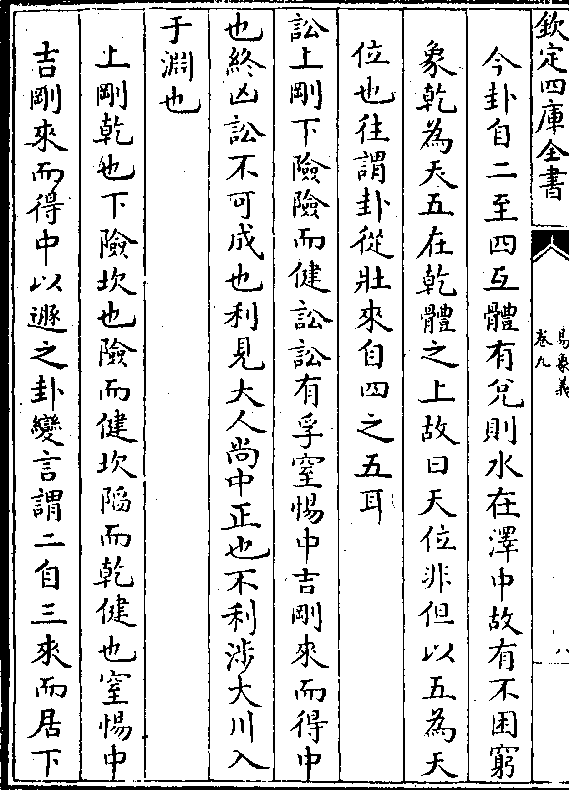 欽定四庫全書
易象義
卷九
八
今卦自二至四互體有兌則水在澤中故有不困窮
象乾為天五在乾體之上故曰天位非但以五為天
位也往謂卦從壯來自四之五耳
訟上剛下險險而健訟訟有孚窒惕中吉剛來而得中
也終凶訟不可成也利見大人尚中正也不利涉大川入
于淵也
上剛乾也下險坎也險而健坎陷而乾健也窒惕中
吉剛來而得中以遯之卦變言謂二自三來而居下